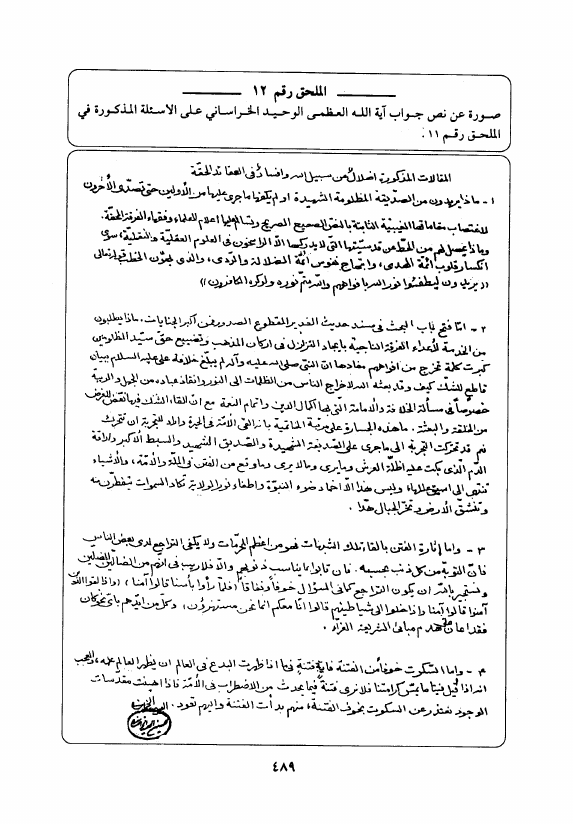 الملحق رقم ١٢
صورة عن نص جواب آية الله العظمى الوحيد الخراساني على الاسئلة المذكورة في
الملحق رقم ١١.
المقالات المذكورة اضلال عن سبيل الله وافساد في العقائد الحقّة
١ - ماذا يريدون من الصدّيقة المظلومة الشهيدة او لم يكفها ما جرى عليها من الأولين حتى تصدّى الآخرون
لاغتصاب مقاماتها الغيبية الثابتة بالنصّ الصحيح الصريح اعلام العلماء وفقهاء الفرقة الحقّة.
وماذا يحصل لهم من الحطّ عن قدسيّتها التي لا يدركها الّا الراسخون في العلوم العقلية والنقلية، سوى
انكسار قلوب ائمّة الهدى، وابتهاج نفوس ائمّة الضلالة والرّدى، والذي
((يريدون ليطفئوا نور الله بافواههم والله متمّ نوره ولو كره الكافرون))
٢ - امّا فتح باب البحث في سند حديث الغدير المقطوع الصدور فمن اكبر الجنايات. ماذا يطلبون
من الخدمة لأعداء الفرقة الناجية بايجاد التزلزل في اركان المذهب وتضييع حقّ سيّد المظلومين
كبرت كلمة تخرج من افواههم مفادها انّ النبيّ صلى الله عليه وآله لم يبلّغ خلافة علي عليه السلام ببيان
قاطع للشك كيف وقد بعثه الله لاخراج الناس من الظلمات الى النور وانقاذ عباده من الجهل والريبة
خصوصاً في مسألة الخلافة والامامة التي بها اكمال الدين واتمام النعمة مع انّ القاء الشك فيها نقض للغرض
من الخلقة والبعثة. ما هذه الجسارة على مرتبة الخاتمية بانّه القى الأمّة في الحيرة واعدّ للتجربة ان تتحرك
نعم قد تحرّكت التجربة الى ما جرى على الصدّيقة الشهيدة والصدّيق الشهيد والسبط الأكبر واراقة
الدّم الّذي بكت عليه اظلّة العرش وما يرى وما لا يرى وما وقع من الفتن في الملّة والأمّة، والأشياء
تنتهي الى اسبق عللها، وليس هذا الّا اخماد ضوء النبوّة واطفاء نور الولاية تكاد السموات يتفطّرن منه
وتنشقّ الأرض وتخرّ الجبال هدّا.
٣ - واما إثارة الفتن بالقاء تلك الشبهات فهو من اعظم المحرّمات ولا يكفي التراجع لدى بعض الناس
فانّ التوبة من كل ذنب بحسبه. فان قالوا بما يناسب ذنوبهم والّا فلا ريب في انّهم من الضالّين المضلّين
ونستجير بالله ان يكون التراجع كما في السؤال خوفاً ونفاقاً (فلمّا رأوا بأسنا قالوا آمنا) (واذا لقوا الذين
آمنوا قالوا آمنا واذا خلوا الى شياطينهم قالوا انّا معكم انما نحن مستهزؤن، وكلّ من ايّدهم بايّ نحو كان
فقد اعان على هدم مباني الشريعة الغرّاء.
٤ - واما السكوت خوفاً من الفتنة فاية فتنة فيما اذا ظهرت البدع في العالم ان يظهر العالم علمه، والعجب
انه اذا قيل فينا ما يمسّ كرامتنا فلا نرى فتنة فيما يحدث من الاضطراب في الأمّة فاذا اهينت مقدّسات
الوجود نعتذر عن السكوت بخوف الفتنة، منهم بدأت الفتنة واليهم تعود.
٤٨٩